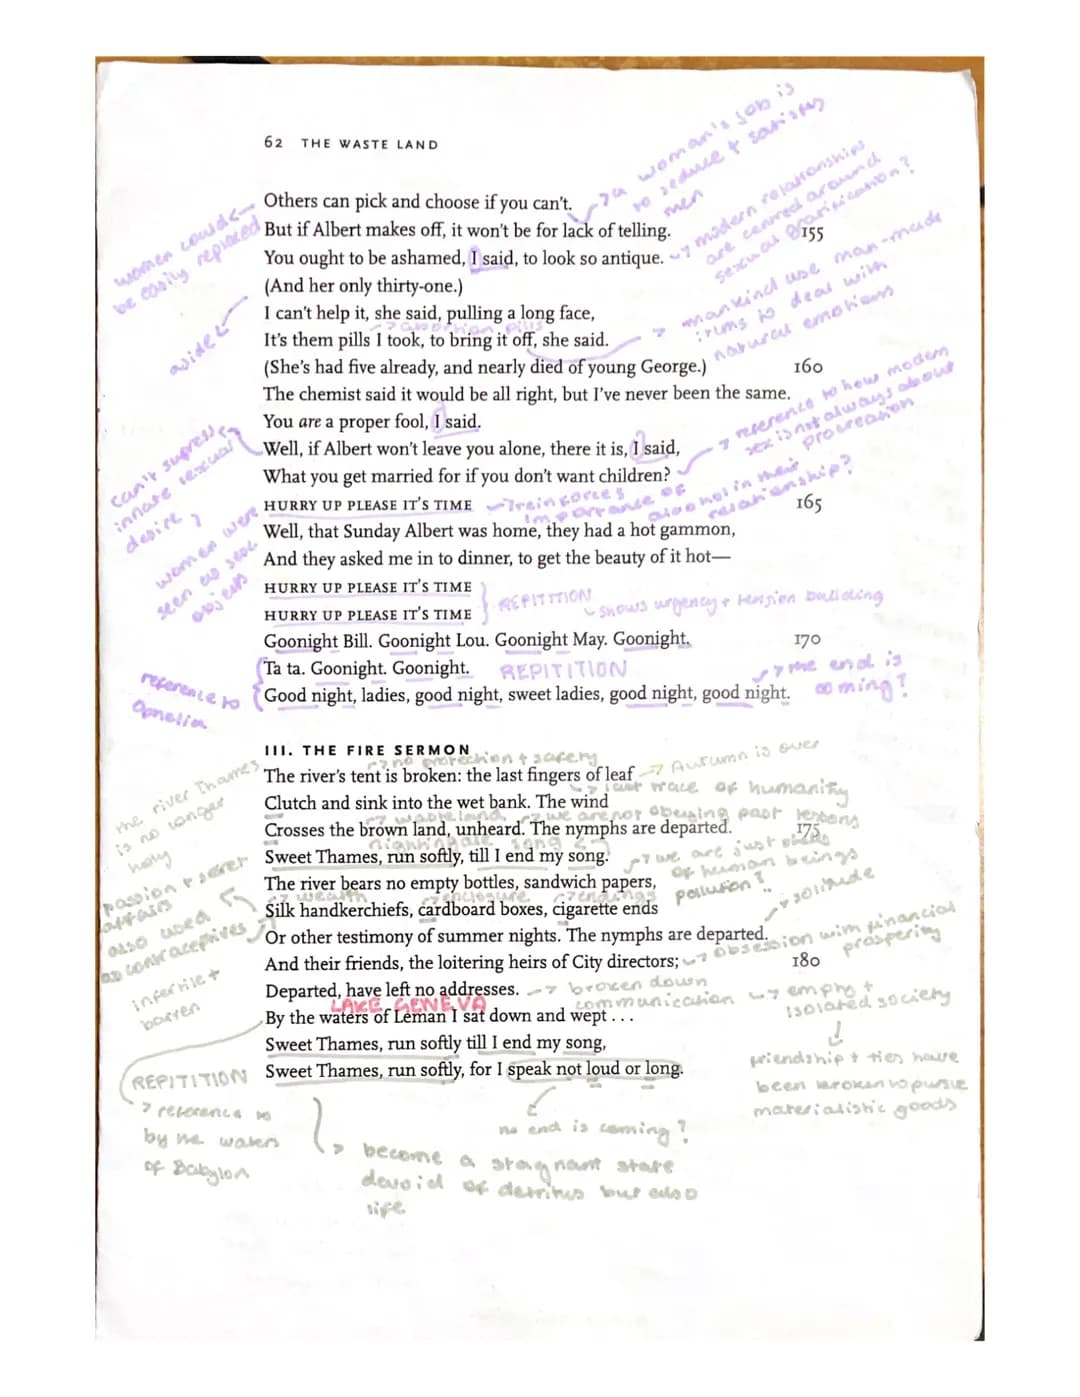 62 THE WASTE LAND
→ a woman's job is
to seduce + satisfy
men
Others can pick and choose if you can't.
women could
be easily replaced
But if Albert makes off, it won't be for lack of telling.
→ modern relationships
are centred around
sexual gratification?
155
You ought to be ashamed, I said, to look so antique.
(And her only thirty-one.)
aside
I can't help it, she said, pulling a long face,
→ abortion pills
→ mankind use man-made
to deal with
natural emotions
It's them pills I took, to bring it off, she said.
(She's had five already, and nearly died of young George.)
160
The chemist said it would be all right, but I've never been the same.
You are a proper fool, I said.
→ reference to how modern
sex is not always about
procreation
can't supress
innate sexual
desire?
Well, if Albert won't leave you alone, there it is, I said,
What you get married for if you don't want children?
HURRY UP PLEASE IT'S TIME
→ reinforces
importance of
alcohol in their
relationship?
165
women were
seen as sex
objects
Well, that Sunday Albert was home, they had a hot gammon,
And they asked me in to dinner, to get the beauty of it hot—
HURRY UP PLEASE IT'S TIME
HURRY UP PLEASE IT'S TIME
REPITITION
shows urgency + tension building
Goonight Bill. Goonight Lou. Goonight May. Goonight.
170
Ta ta. Goonight. Goonight.
REPITITION
→ the end is
coming?
reference to
Ophelia
Good night, ladies, good night, sweet ladies, good night, good night.
III. THE FIRE SERMON
→ no protection + safety
the river Thames
is no longer
holy
The river's tent is broken: the last fingers of leaf
→ Autumn is over
→ last trace of humanity
Clutch and sink into the wet bank. The wind
→ wasteland
→ we are not obeying past lessons
Crosses the brown land, unheard. The nymphs are departed.
175
nightingale song
Sweet Thames, run softly, till I end my song.
→ we are just
of human beings
The river bears no empty bottles, sandwich papers,
pollution?
passion + secret
affairs
also used
as contraceptives
→ wealth
→ enclosure
→ endings
Silk handkerchiefs, cardboard boxes, cigarette ends
→ solitude
Or other testimony of summer nights. The nymphs are departed.
→ obsession with financial
prospering
And their friends, the loitering heirs of City directors;
180
infertile +
barren
Departed, have left no addresses.
→ broken down
communication
→ empty +
isolated society
LAKE GENEVA
By the waters of Leman I sat down and wept . . .
Sweet Thames, run softly till I end my song,
friendship + ties have
been broken to pursue
materialistic goods
REPITITION
Sweet Thames, run softly, for I speak not loud or long.
→ reference to
by the waters
of Babylon
no end is coming?
→ become a stagnant state
devoid of detritus but also
life